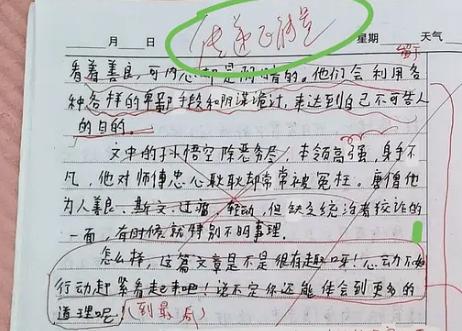 传递正能量
月 日 星期 天气
看着善良,可内心却是阴暗的。他们会利用各
种各样的卑鄙手段和阴谋诡计,来达到自己不可告人
的目的。
文中的孙悟空除恶务尽,本领高强,身手不
凡,他对师傅忠心耿耿却常常被冤枉。唐僧他
为人善良、斯文、迂腐,但缺乏统治者狡诈的
一面,有时候就特别不明事理。
怎么样,这篇文章是不是很有趣呀!心动不如
行动赶紧看起来吧!说不定你还能体会到更多的
道理呢(到最后)